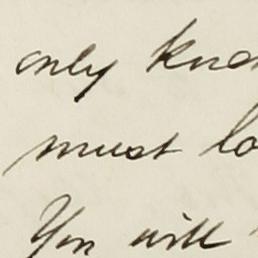 only kno
must lo
You will